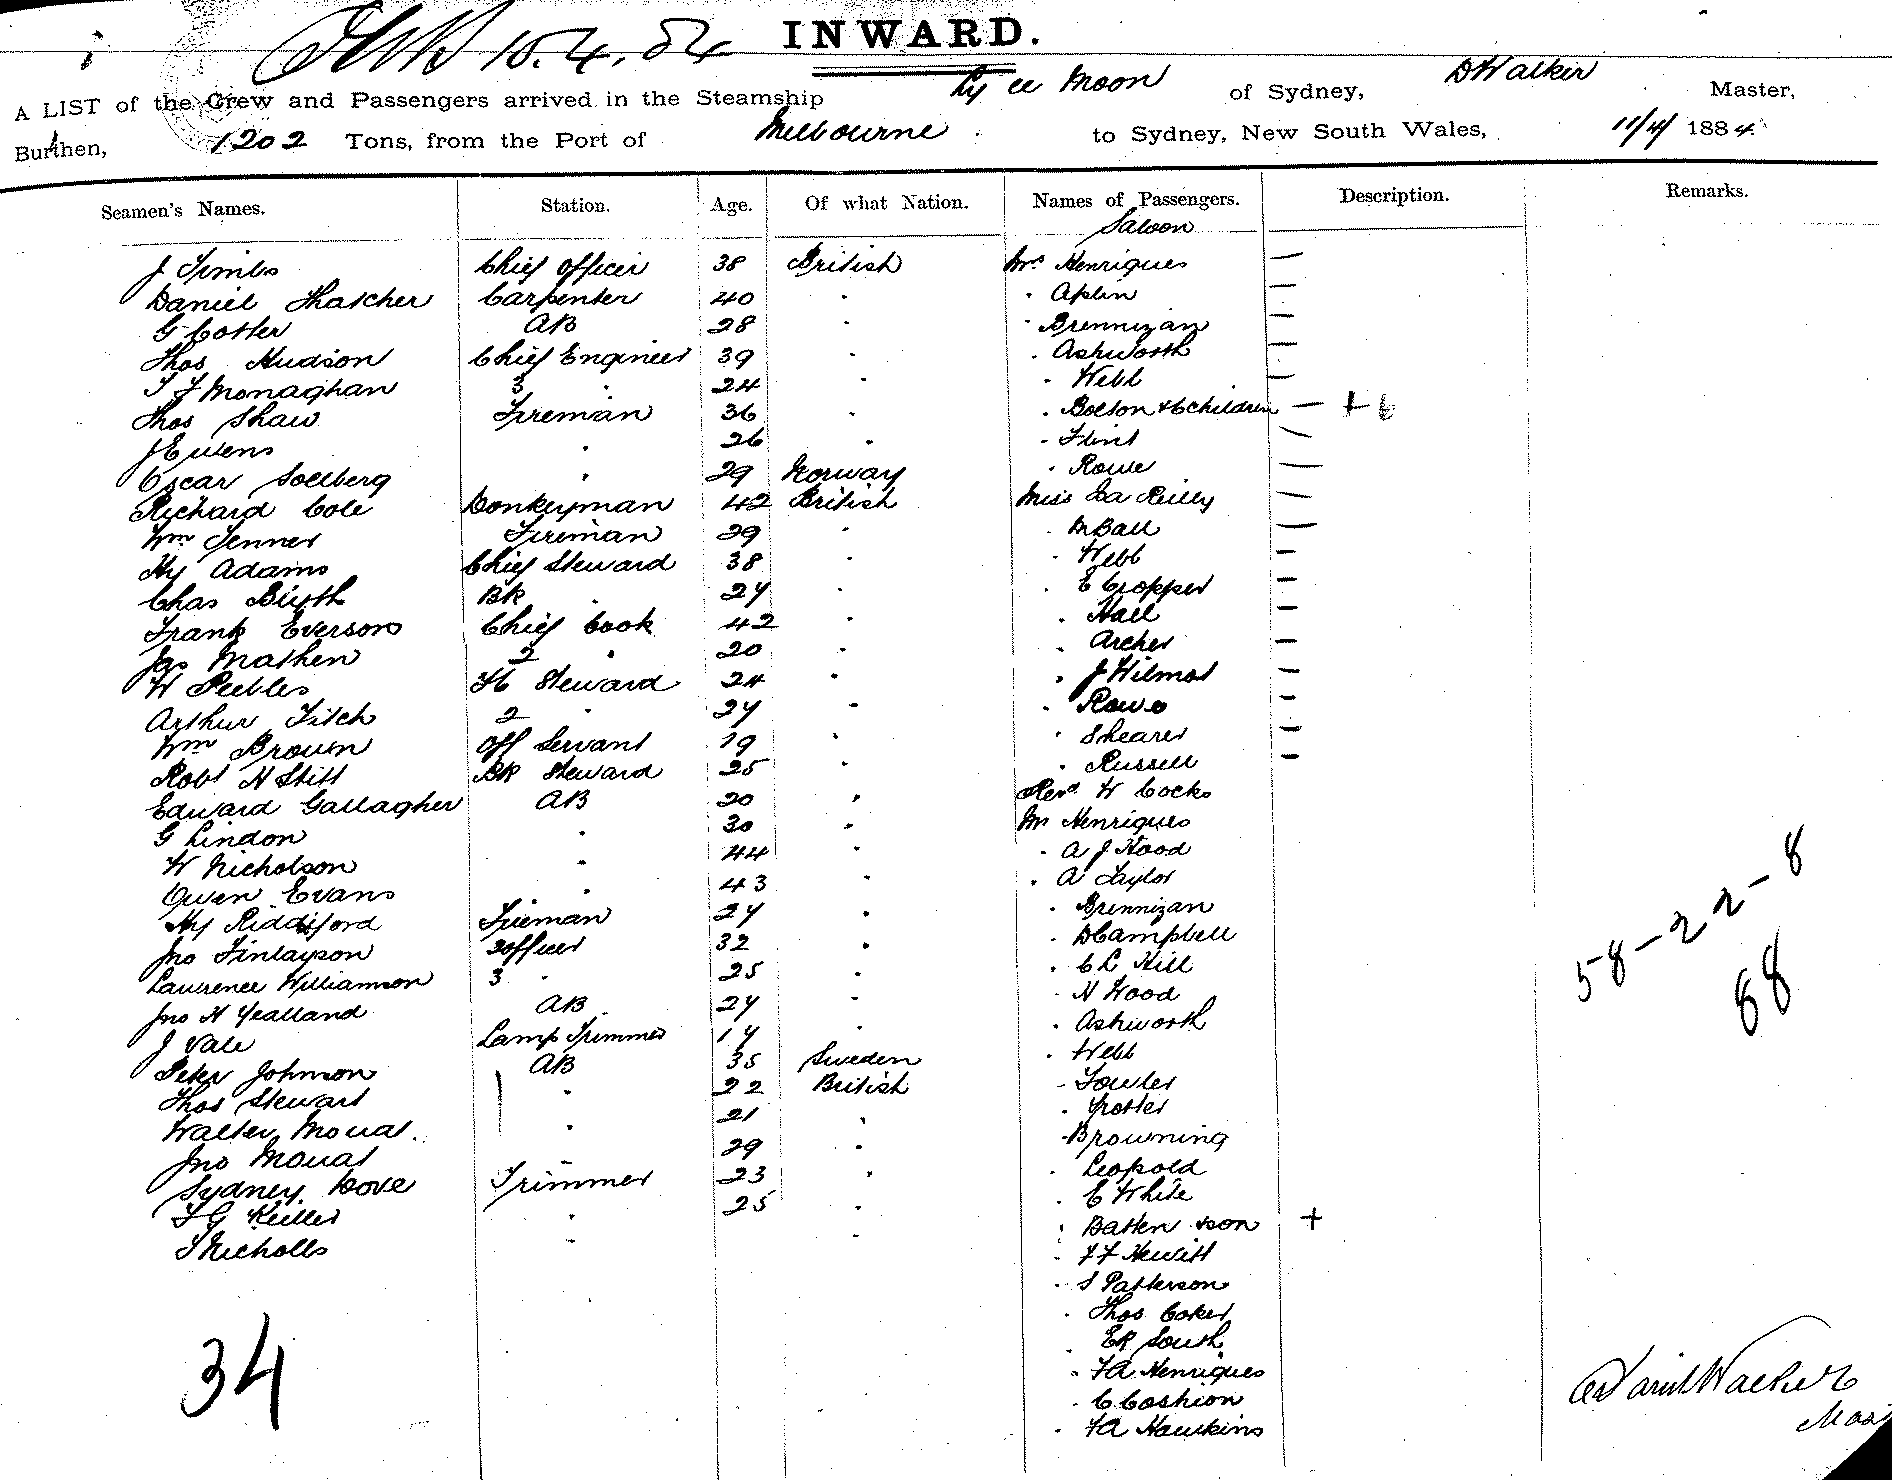 15.4.84
INWARD.
A LIST of the Crew and Passengers arrived in the Steamship Ly ee Moon of Sydney, D Walker Master,
Burthen, 1202 Tons, from the Port of Melbourne to Sydney, New South Wales, 11/4/ 1884.
Seamen's Names. Station. Age. Of what Nation. Names of Passengers. Description. Remarks.
Saloon
J Timbs Chief Officer 38 British Mrs Henriques —
Daniel Thatcher Carpenter 40 " " Aplin —
G Cotter AB 28 " " Brennizan —
Thos Hudson Chief Engineer 39 " " Ashworth —
T F Monaghan 3 " 24 " " Webb —
Thos Shaw Fireman 36 " " Bolton + 6 children — + 6
J Evens " 26 " " Flint —
Oscar Soelberg " 29 Norway " Rowe —
Richard Cole Donkeyman 42 British Miss La Reilly —
Wm Jenner Fireman 29 " " M Ball —
Hy Adams Chief Steward 38 " " Webb —
Chas Birth BK " 27 " " E Cropper —
Frank Everson Chief Cook 42 " " Hall —
Jas Mathen 2 " 20 " " Archer —
W Peebles Steward 24 " " J Wilmot —
Arthur Fitch 2 " 27 " " Rowe —
Wm Brown Off Servant 19 " " Shearer —
Robt H Stitt BK Steward 25 " " Russell —
Edward Gallagher AB 20 " Revd W Cocks
G Lindon " 30 " Mr Henriques
W Nicholson " 44 " " A J Hood
Owen Evans " 43 " " A Taylor
Hy Riddiford Fireman 27 " " Brennizan
Jno Finlayson 2 Officer 32 " " D Campbell
Laurence Williamson 3 " 25 " " C L Hill
Jno H Yealland AB 27 " " H Wood
J Vale Lamp Trimmer 17 " " Ashworth
Peter Johnson AB 35 Sweden " Webb
Thos Stewart " 22 British " Fowler
Walter Mouat " 21 " " Trotter
Jno Mouat " 29 " " Browning
Sydney Dove Trimmer 23 " " Leopold
F G Keiller " 25 " " C White
T Nicholls " " " Batten + son +
" F F Hewitt
" S Patterson
" Thos Coker
" E R South
" F A Henriques
" C Cashion
" F A Hawkins
58 – 22 – 8
88
34
David Walker